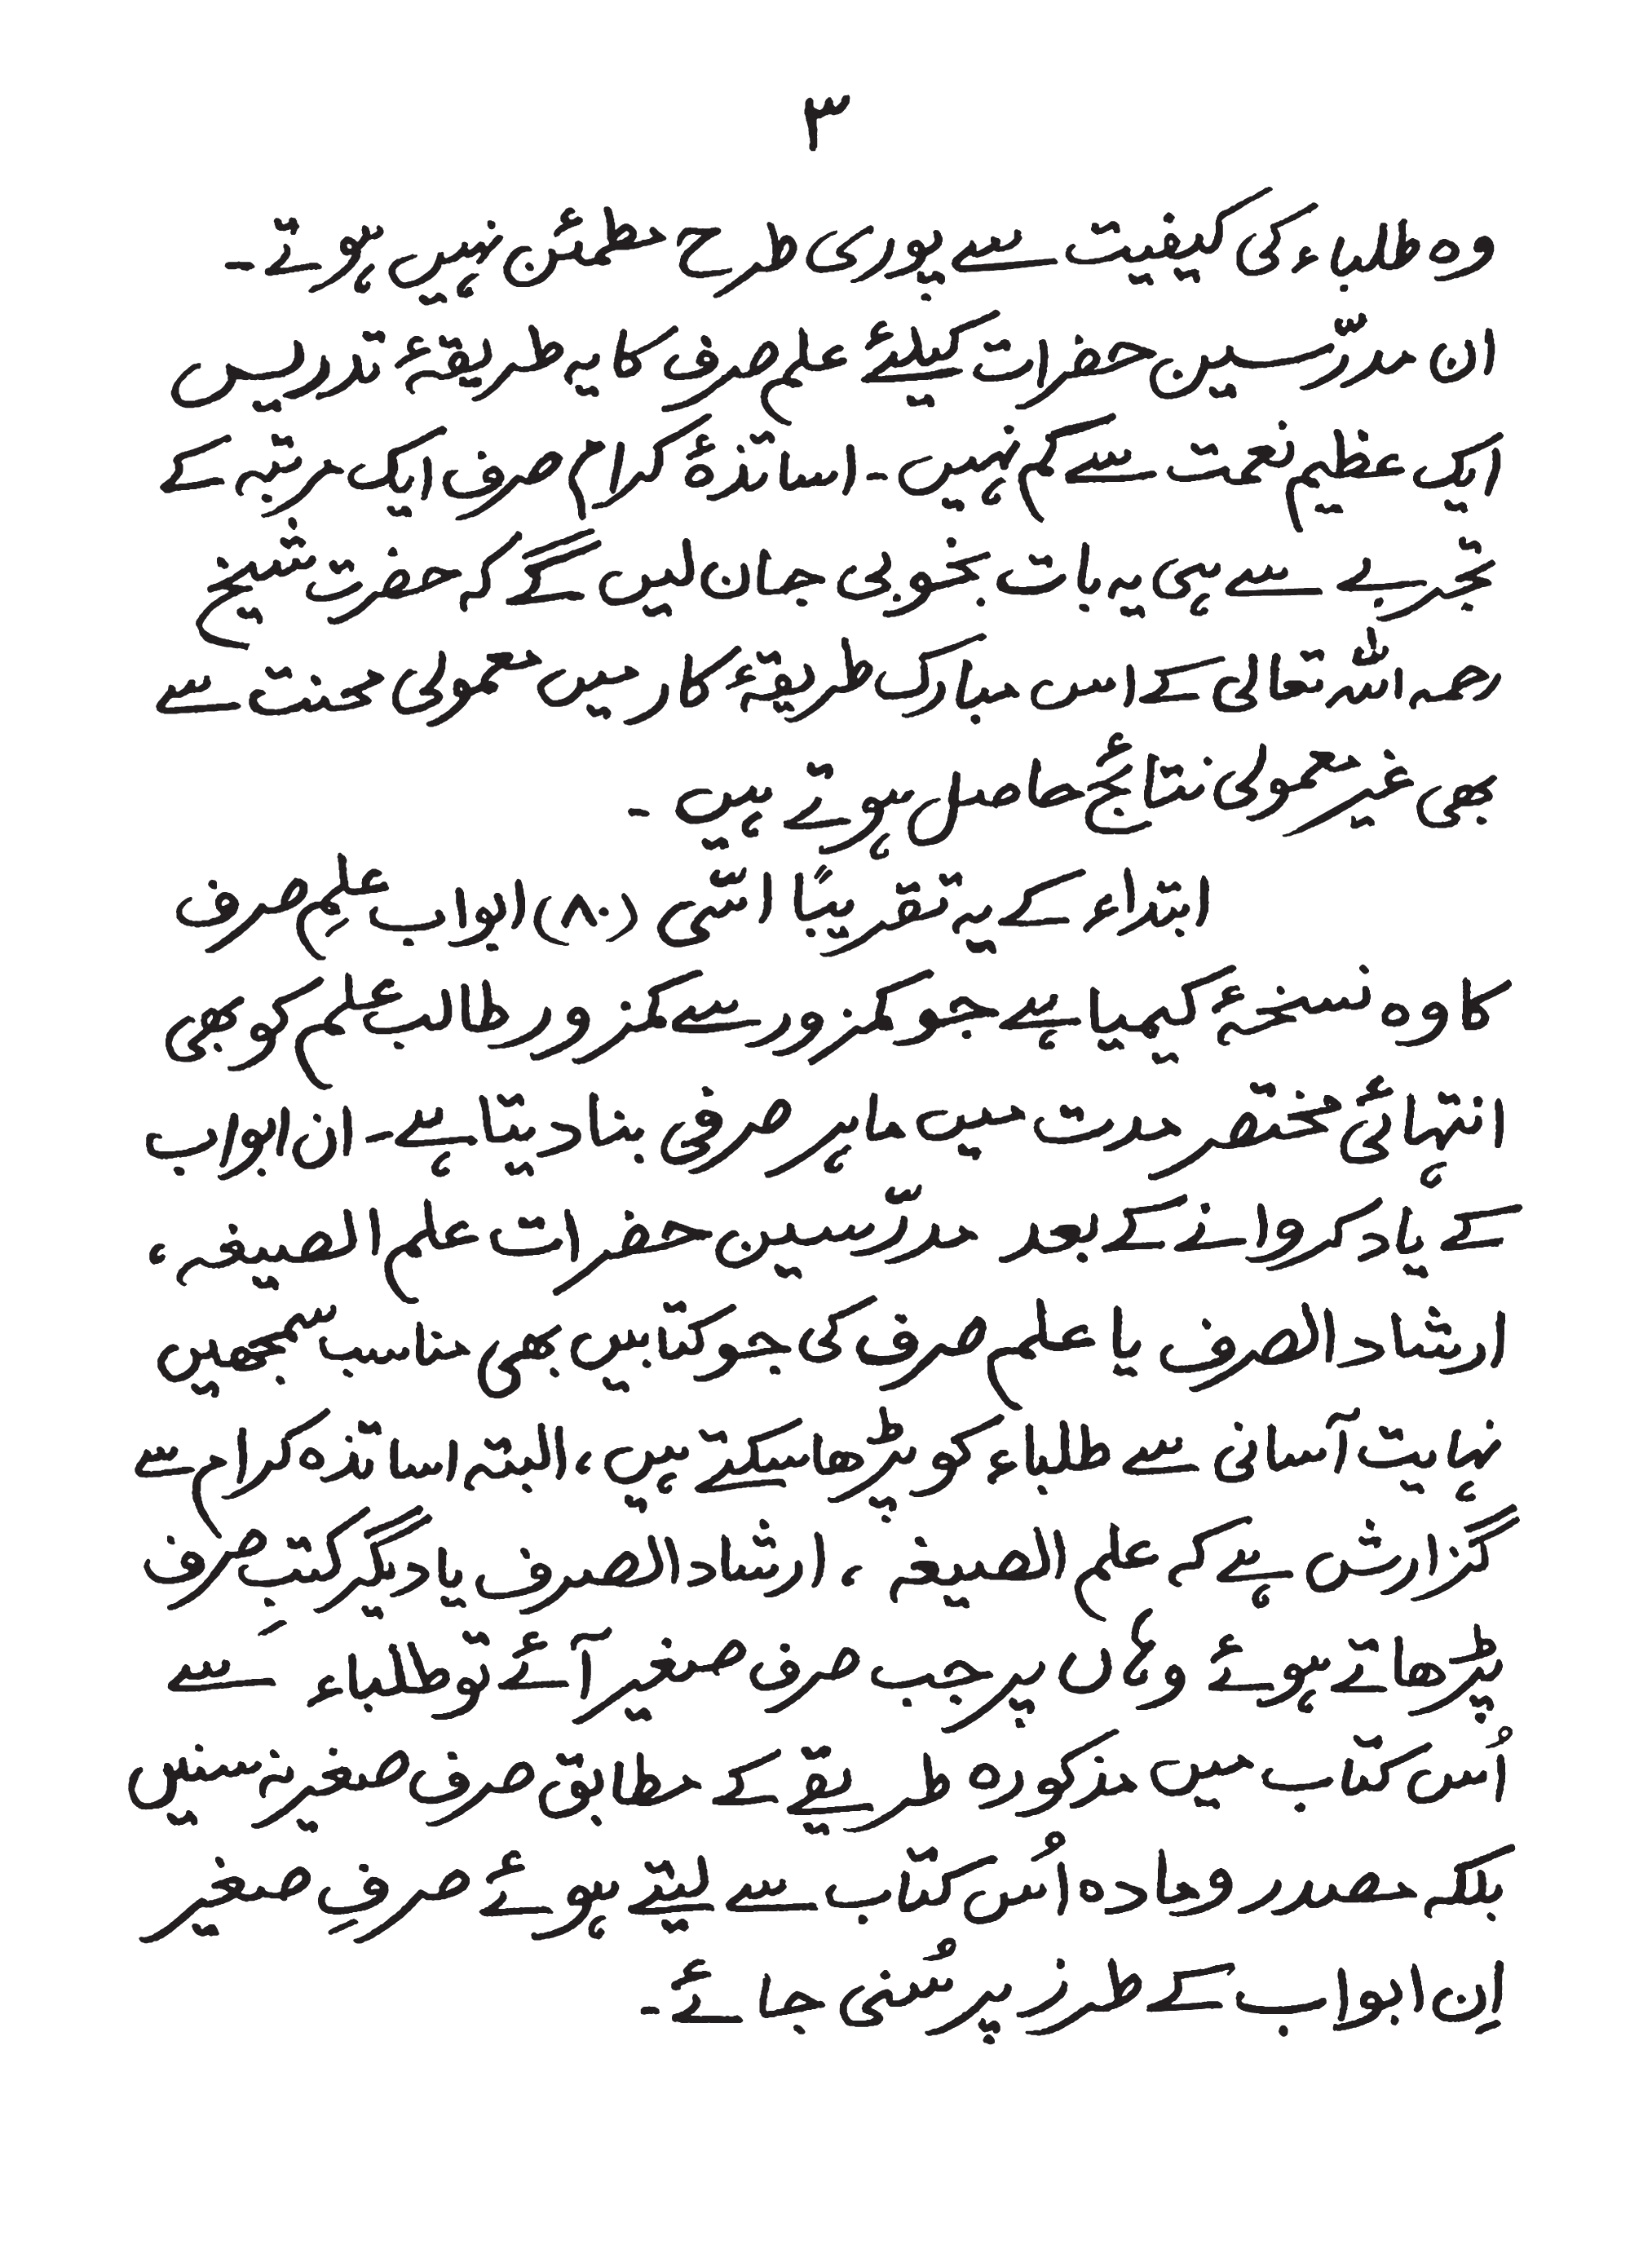 ۳
وہ طلباء کی کیفیت سے پوری طرح مطمئن نہیں ہوتے۔
ان مدرّسین حضرات کیلئے علم صرف کا یہ طریقۂ تدریس
ایک عظیم نعمت سے کم نہیں۔ اساتذۂ کرام صرف ایک مرتبہ کے
تجربے سے ہی یہ بات بخوبی جان لیں گے کہ حضرت شیخ
رحمہ اللہ تعالی کے اس مبارک طریقۂ کار میں معمولی محنت سے
بھی غیر معمولی نتائج حاصل ہوتے ہیں ۔
ابتداء کے یہ تقریبًا اسّی (۸۰) ابواب علمِ صرف
کا وہ نسخۂ کیمیا ہے جو کمزور سے کمزور طالب علم کو بھی
انتہائی مختصر مدت میں ماہر صرفی بنا دیتا ہے۔ ان ابواب
کے یاد کروانے کے بعد مدرّسین حضرات علم الصیغہ ،
ارشاد الصرف یا علم صرف کی جو کتابیں بھی مناسب سمجھیں
نہایت آسانی سے طلباء کو پڑھا سکتے ہیں ، البتہ اساتذہ کرام سے
گزارش ہے کہ علم الصیغہ ، ارشاد الصرف یا دیگر کتبِ صرف
پڑھاتے ہوئے وہاں پر جب صرف صغیر آئے تو طلباء سے
اُس کتاب میں مذکورہ طریقے کے مطابق صرف صغیر نہ سنیں
بلکہ مصدر و مادہ اُس کتاب سے لیتے ہوئے صرفِ صغیر
اِن ابواب کے طرز پر سُنی جائے۔